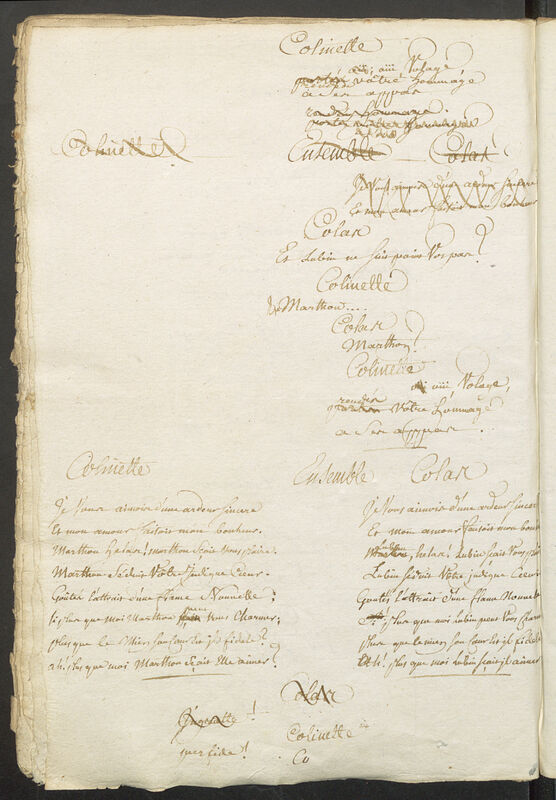 Colinette
oui, oui Volage
portés votre hommage
a Ses appas
rendés hommage
Colinette
Ensemble Colas
Je Vous aimois d'une ardeur sincere
Et mon amour faisoit mon bonheur
Colas
Et Lubin ne suit point Vos pas?
Colinette
Marthon....
Colas
Marthon?
Colinette
oui Volage,
rendés
portés Votre hommage
a Ses appas ..
Colinette Ensemble Colas
Je Vous aimois d'une ardeur sincere
Et mon amour faisoit mon bonheur.
Marthon helas! marthon sçait vous plaire.
Marthon Séduit Votre Cœur.
Goutés l'attrait d'une flame Nouvelle;
si plus que moi Marthon peut vous Charmer;
plus que le Mien son Cœur est il fidele?
ah! plus que moi Marthon Sçait Elle aimer?
Je Vous aimois d'une ardeur sincere
Et mon amour faisoit mon bonh
Lubin, helas! Lubin sçait Vous plai
Lubin séduit Votre Cœur
Goutés l'attrait d'une flame Nouvelle
plus que moi Lubin peut Vous Charm
plus que le mien son Cœur est il fidele
Ah! plus que moi Lubin sçait il aimer
Colas
! Colinette
perfide! Co